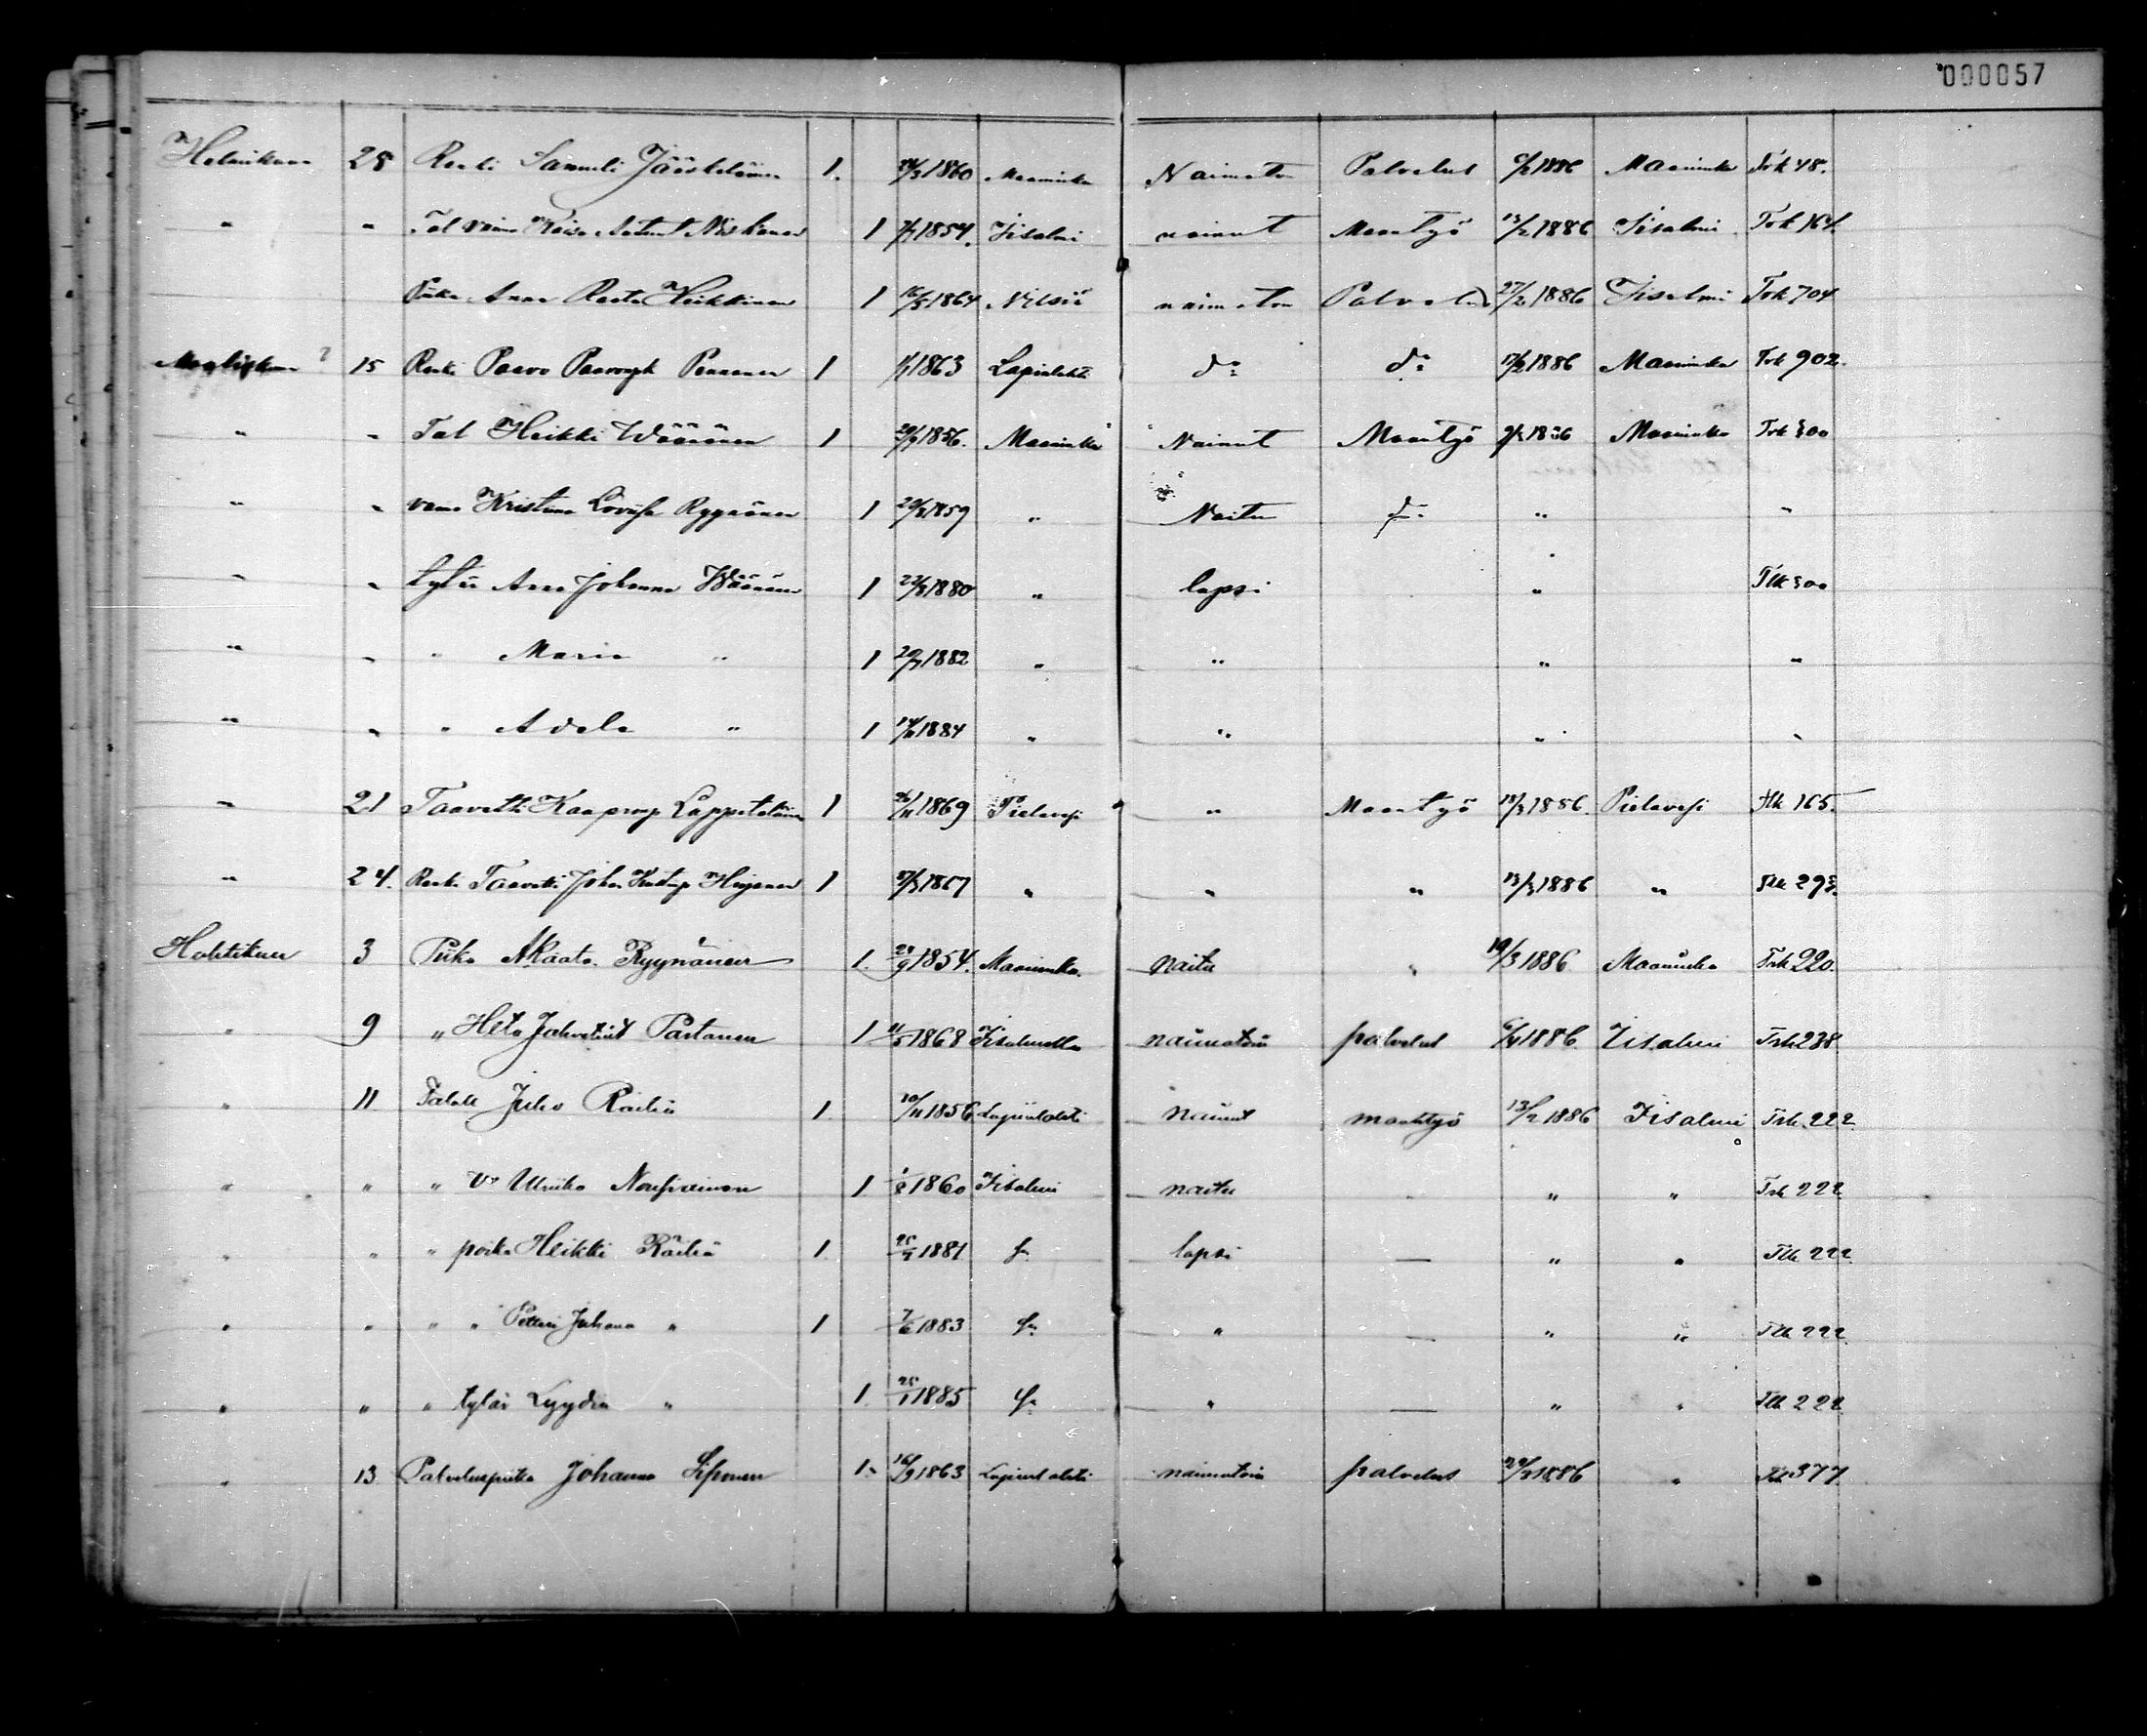 000057
Helmikuu 28 Renki Samuli Jääskeläinen 1. 1860 Maaninka Naimaton Palvelus 1886 Maaninka Trk 48.
" " Tal vaimo Kaisa Niskanen 1 1854. Iisalmi nainut Maatyö 13/2 1886 Iisalmi Trk 164.
Piika Anna Reeta Heikkinen 1 16/5 1864 Nilsiä naimaton Palvelus 27/2 1886 Iisalmi Trk 704
Maaliskuu 15 Renki Paavo Paavonp Penanen 1 1863 Lapinlahti d:o d:o 17/2 1886 Maaninka Trk 902.
" " Tal Heikki Wäänänen 1 1856. Maaninka Nainut Maatyö 1886 Maaninka Trk 300
" " vaimo Kristina Lovisa Ryynänen 1 1859 " Naitu d:o " "
" " tytär Anna Johanna Wäänänen 1 22/8 1880 " lapsi " Tlk 300
" " " Maria " 1 1882 " " " "
" " " Adela " 1 1884 " " " "
" 21 Taavetti Kaaponp Lappeteläinen 1 26/11 1869 Pielavesi " Maatyö 18/3 1886. Pielavesi Tlk 165.
" 24. Renki Taavetti Johan 1 1867 " " " 13/3 1886 " Tlk 293.
Huhtikuu 3 Piika Kaata Ryynänen 1. 29/9 1854. Maaninka. Naitu " 19/3 1886 Maaninka Trk 220.
" 9 " Heta Partanen 1 11/5 1868 Iisalmella naimatoin palvelus 6/4 1886. Iisalmi Trk 238
" 11 Talall Juho Räihä 1. 10/11 1856 Lapinlahti Nainut maatyö 13/2 1886 Iisalmi Trk 222.
" " " Vo Ulriika Nousiainen 1 1/8 1860 Iisalmi naitu " " Trk 222
" " " poika Heikki Räihä 1. 25/4 1881 d:o lapsi — " " Tlk 222
" " " " Petteri Juhana " 1 7/6 1883 d:o " — " " Tlk 222
" " " tytär Lyydia " 1. 25/1 1885 d:o " — " " Tlk 222
" 13. Palveluspiika Johanna Siponen 1. 16/9 1863 Lapinlahti naimatoin palvelus 1886 " 377.